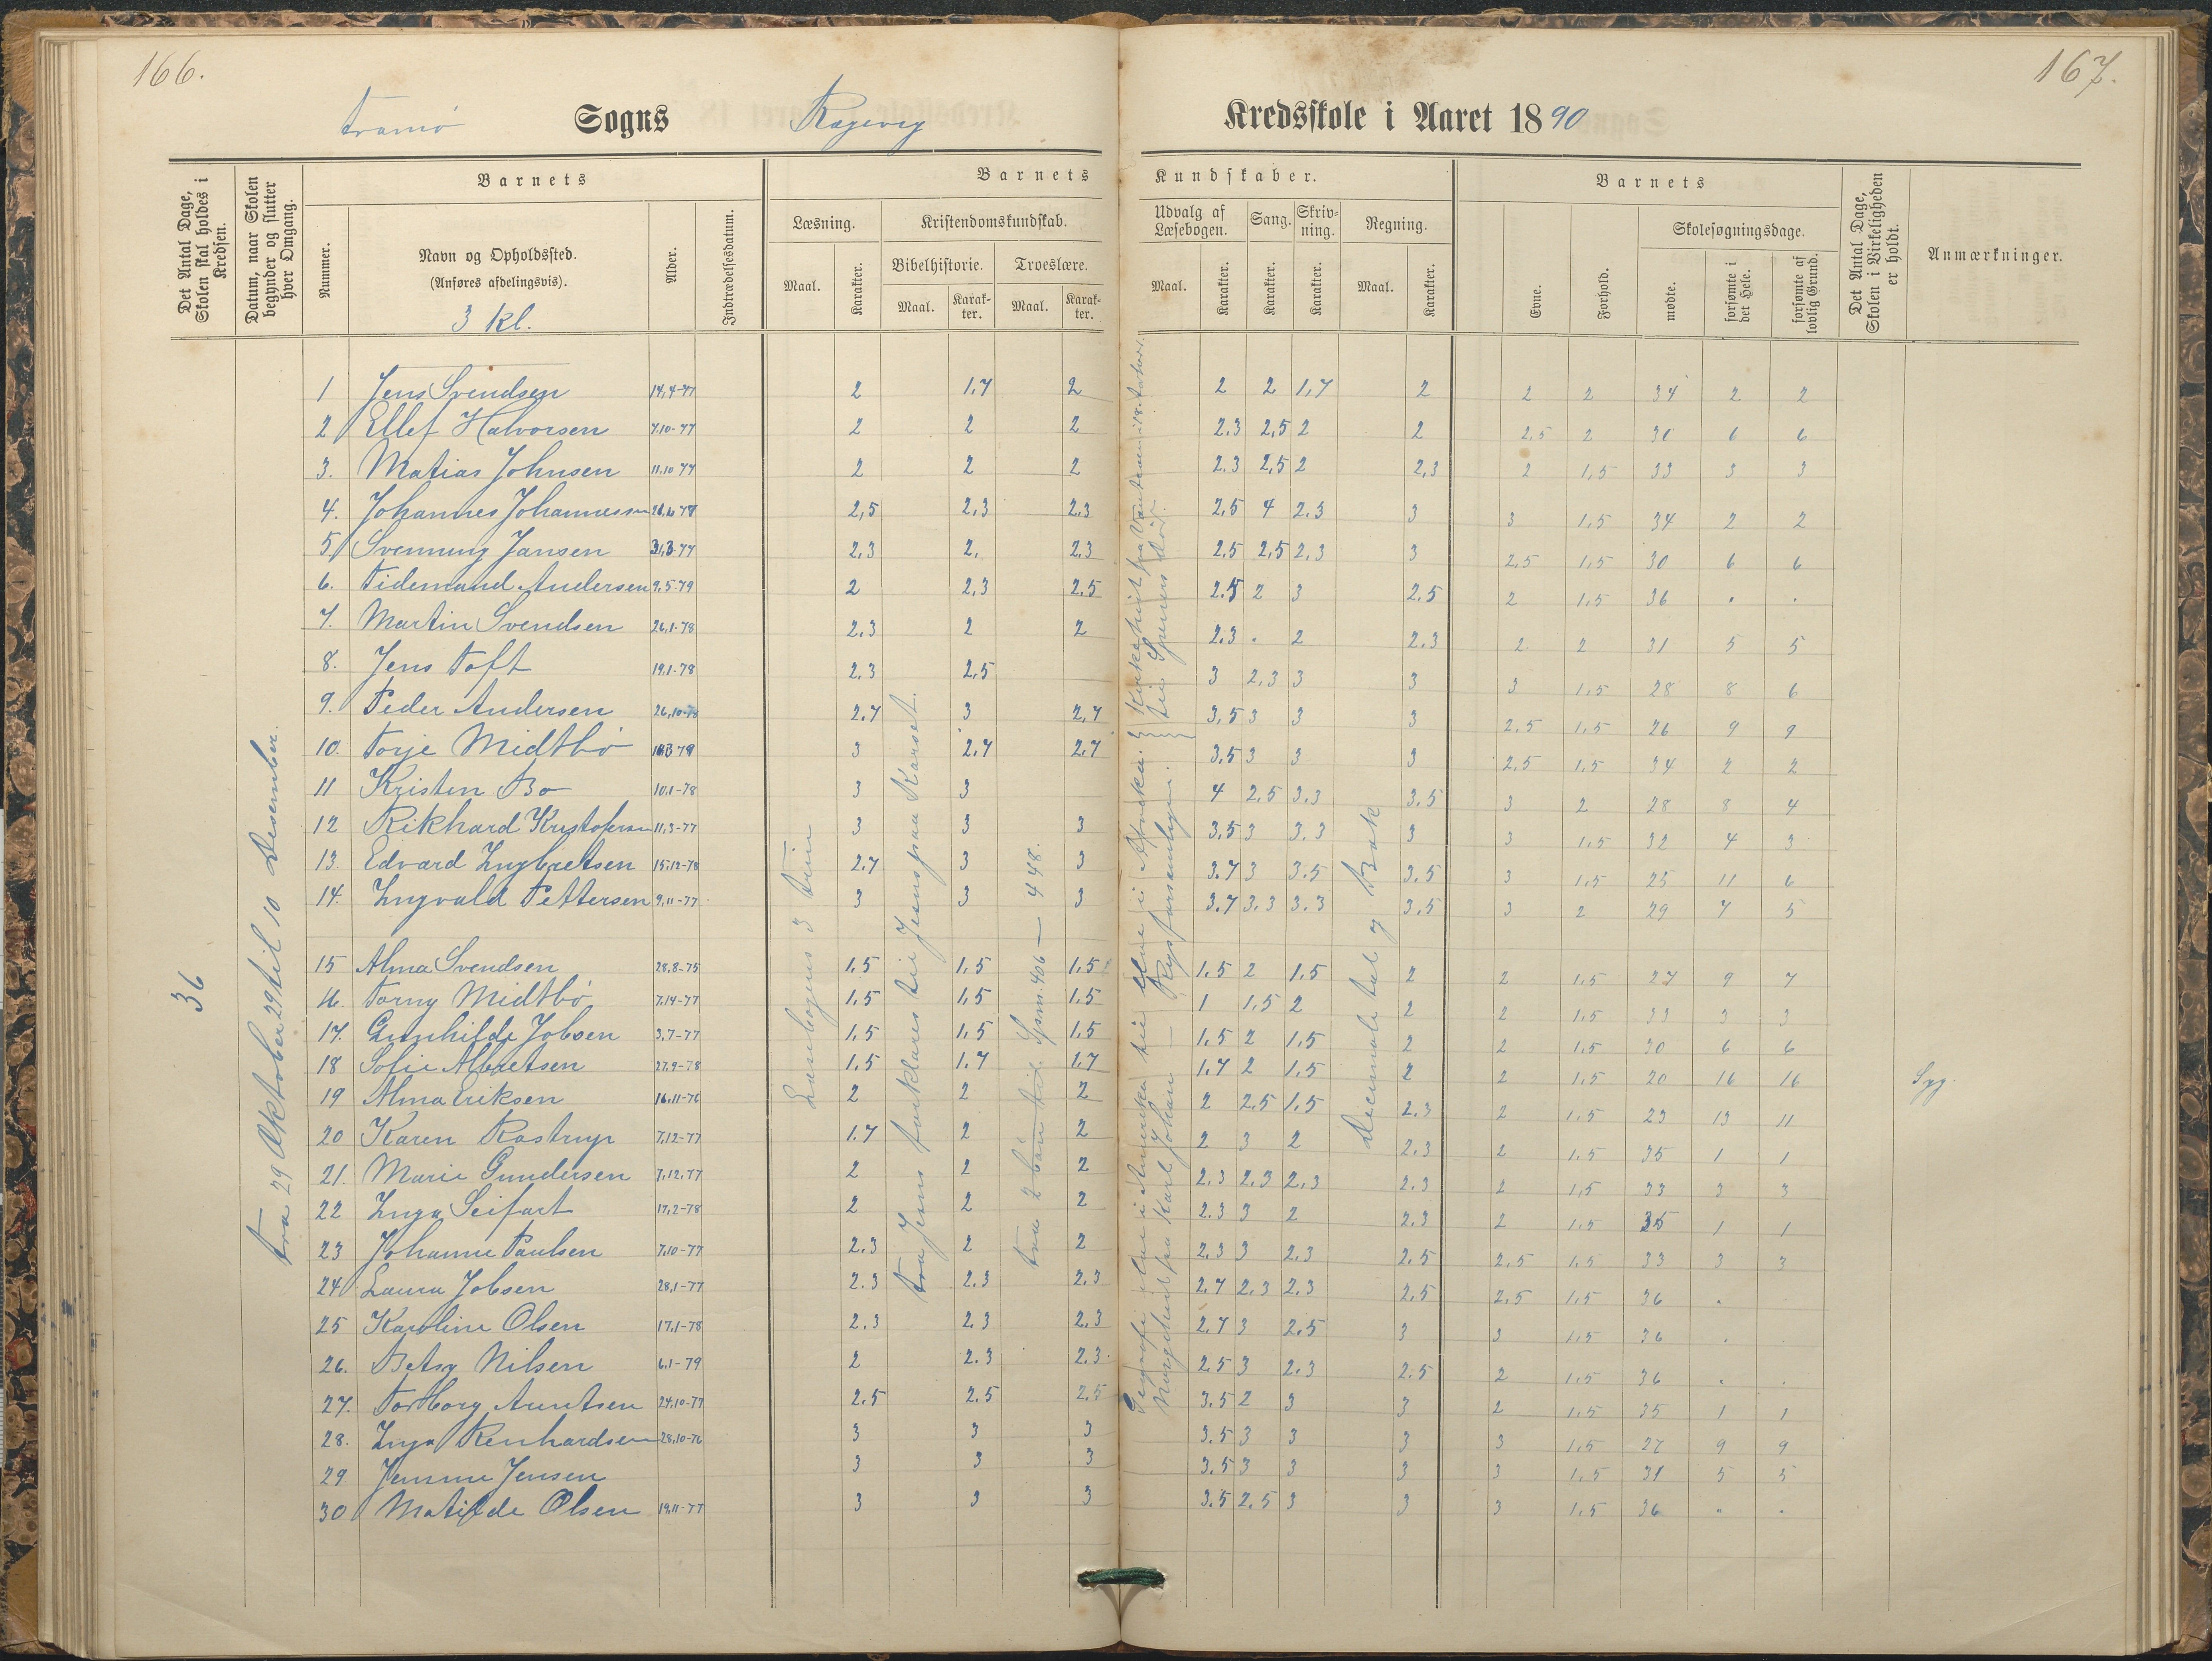 166.
167.
Tromø Sogns Ragevig Kredsskole i Aaret 1890
Det Antal Dage, Skolen skal holdes i Kredsen.
Datum, naar Skolen begynder og slutter hver Omgang.
Barnets
Nummer.
Navn og Opholdssted.
(Anføres afdelingsvis).
3 kl.
Alder.
Indtrædelsesdatum.
Barnets Kundskaber.
Læsning.
Maal. Karakter.
Kristendomskundskab.
Bibelhistorie. Troeslære.
Maal. Karakter. Maal. Karakter.
Udvalg af Læsebogen. Sang. Skrivning. Regning.
Maal. Karakter. Karakter. Karakter. Maal. Karakter.
Barnets
Evne. Forhold.
Skolesøgningsdage.
mødte. forsømte i det Hele. forsømte af lovlig Grund.
Det Antal Dage, Skolen i Virkeligheden er holdt.
Anmærkninger.
36
fra 29 Oktober 29 til 10 Desember.
Læsebogens 3 trin
fra Jesus forklares til Jesus paa Korset.
Spm. 406 — 448.
Decimaltal og Brøk
1 Jens Svendsen 14,4-77 2 1,7 2 2 2 1,7 2 2 2 34 2 2
2 Ellef Halvorsen 7.10-77 2 2 2 2.3 2,5 2 2 2,5 2 30 6 6
3. Matias Johnsen 11.10 77 2 2 2 2.3 2,5 2 2,3 2 1,5 33 3 3
4. Johannes Johannessen 2,5 2,3 2.3 2,5 4 2.3 3 3 1.5 34 2 2
5 Svenning Jansen 31,3-77 2,3 2, 2,3 2.5 2,5 2.3 3 2,5 1,5 30 6 6
6. Tidemand Andersen 9.5-79 2 2,3 2.5 2.5 2 3 2.5 2 1.5 36 . .
7. Martin Svendsen 26,1-78 2.3 2 2 2.3 . 2 2.3 2. 2 31 5 5
8. Jens Toft 19,1-78 2.3 2,5 3 2.3 3 3 3 1.5 28 8 6
9. Peder Andersen 26,10-78 2.7 3 2,7 3,5 3 3 3 2.5 1.5 26 9 9
10. Torje Midtbø 3 2.7 2.7 3,5 3 3 3 2,5 1.5 34 2 2
11 Kristen Bo 10,1-78 3 3 4 2,5 3.3 3.5 3 2 28 8 4
12 Rikhard Kristofersen 11,3-77 3 3 3 3,5 3 3.3 3 3 1.5 32 4 3
13. Edvard Ingbretsen 15,12-78 2.7 3 3 3.7 3 3.5 3.5 3 1.5 25 11 6
14. Ingvald Pettersen 9,11-77 3 3 3 3.7 3.3 3.3 3.5 3 2 29 7 5
15 Alma Svendsen 28,8-75 1.5 1.5 1.5 1.5 2 1.5 2 2 1.5 27 9 7
16. Torny Midtbø 7,14-77 1,5 1,5 1.5 1 1.5 2 2 2 1.5 33 3 3
17. Gunhilde Jobsen 3,7-77 1,5 1,5 1.5 1.5 2 1.5 2 2 1.5 30 6 6
18 Sofie Albretsen 27,9-78 1.5 1.7 1.7 1.7 2 1.5 2 2 1.5 20 16 16 Syg.
19 Alma Eriksen 16,11-76 2 2 2 2 2.5 1.5 2.3 2 1.5 23 13 11
20 Karen Rastrup 7,12-77 1.7 2 2 2 3 2 2.3 2 1.5 35 1 1
21. Marie Gundersen 7,12,77 2 2 2 2.3 2.3 2.3 2.3 2 1,5 33 3 3
22 Inga Seifart 17,2-78 2 2 2 2.3 3 2 2.3 2 1.5 35 1 1
23 Johanne Paulsen 7,10-77 2.3 2 2 2.3 3 2.3 2.5 2.5 1.5 33 3 3
24 Laura Jobsen 28,1-77 2.3 2.3 2.3 2.7 2.3 2.3 2.5 2.5 1.5 36 .
25 Karoline Olsen 17,1-78 2.3 2.3 2.3 2.7 3 2.5 3 3 1.5 36 .
26. Betsy Nilsen 6.1-79 2 2.3 2.3 2.5 3 2.3 2.5 2 1.5 36 . .
27. Torborg Arentsen 24,10-77 2.5 2.5 2.5 3.5 2 3 3 2 1.5 35 1 1
28. Inga Renhardsen 28,10-76 3 3 3 3.5 3 3 3 3 1.5 27 9 9
29 Jensine Jensen 3 3 3 3.5 3 3 3 3 1.5 31 5 5
30 Matilde Olsen 19,11-77 3 3 3 3.5 2.5 3 3 3 1.5 36 . .